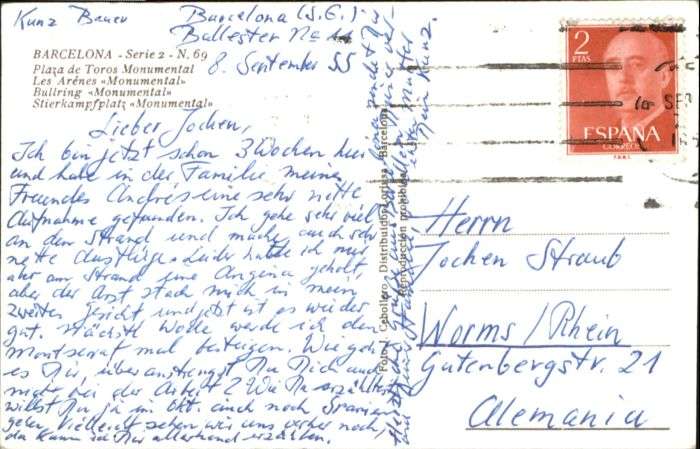 Kunz Bauer
Barcelona (S.G.)
Ballester No
8. September 55
BARCELONA - Serie 2 - N. 69
Plaza de Toros Monumental
Les Arênes «Monumental»
Bullring «Monumental»
Stierkampfplatz «Monumental»
Lieber Jochen,
Ich bin jetzt schon 3 Wochen hier
und habe in der Familie meines
Freundes Andrés eine sehr nette
Aufnahme gefunden. Ich gehe sehr viel
an den Strand und mache auch sehr
nette Ausflüge. Leider hatte ich mir
aber am Strand eine Angina geholt,
aber der Arzt stach mich in mein
zweites Gesicht und jetzt ist es wieder
gut. Nächste Woche werde ich den
Montserrat mal besteigen. Wie geht
es Dir, überanstrengst Du Dich auch
nicht bei der Arbeit? Wie Du erzähltest
willst Du ja im Okt. auch nach Spanien
gehen. Vielleicht sehen wir uns vorher noch,
da kann ich Dir allerhand erzählen.
Herzliche Grüße
Dein Kunz.
Foto J. Cebollero - Distribuidor - Barcelona
Reproducción prohibida
2
PTAS
ESPAÑA
CORREOS
SEP
Herrn
Jochen Straub
Worms/Rhein
Gutenbergstr. 21
Alemania